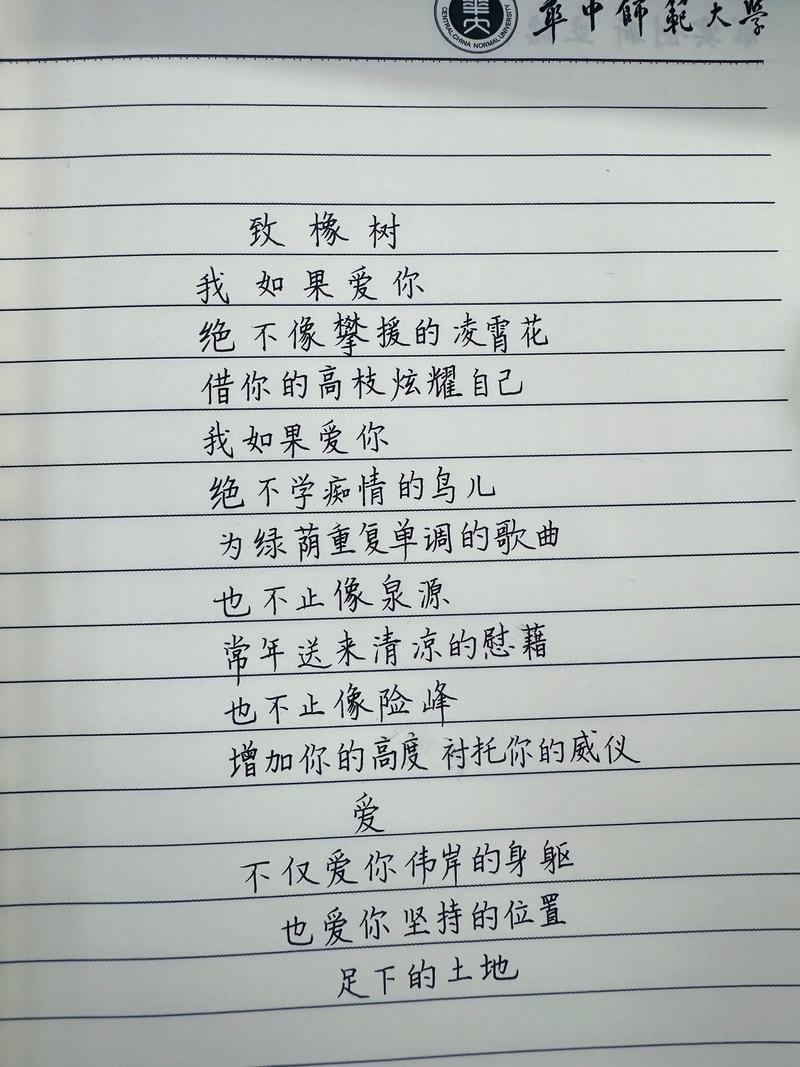 華中師範大學
CENTRAL CHINA NORMAL UNIVERSITY
致橡树
我如果爱你
绝不像攀援的凌霄花
借你的高枝炫耀自己
我如果爱你
绝不学痴情的鸟儿
为绿荫重复单调的歌曲
也不止像泉源
常年送来清凉的慰藉
也不止像险峰
增加你的高度 衬托你的威仪
爱
不仅爱你伟岸的身躯
也爱你坚持的位置
足下的土地